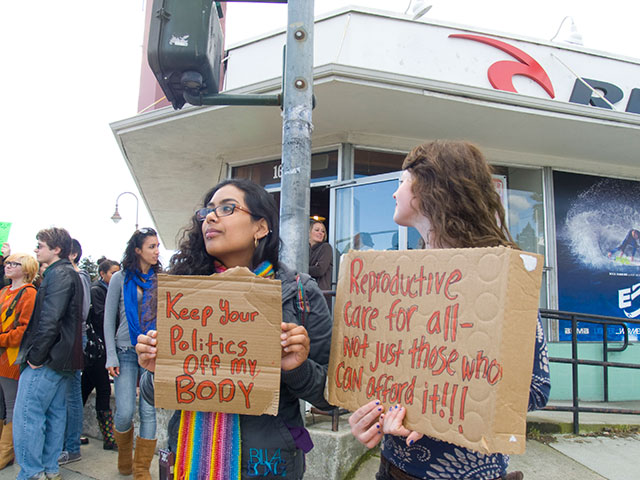 Keep Your
Politics
Off my
BODY
Reproductive
care for all-
not just those who
CAN afford it!!!
16